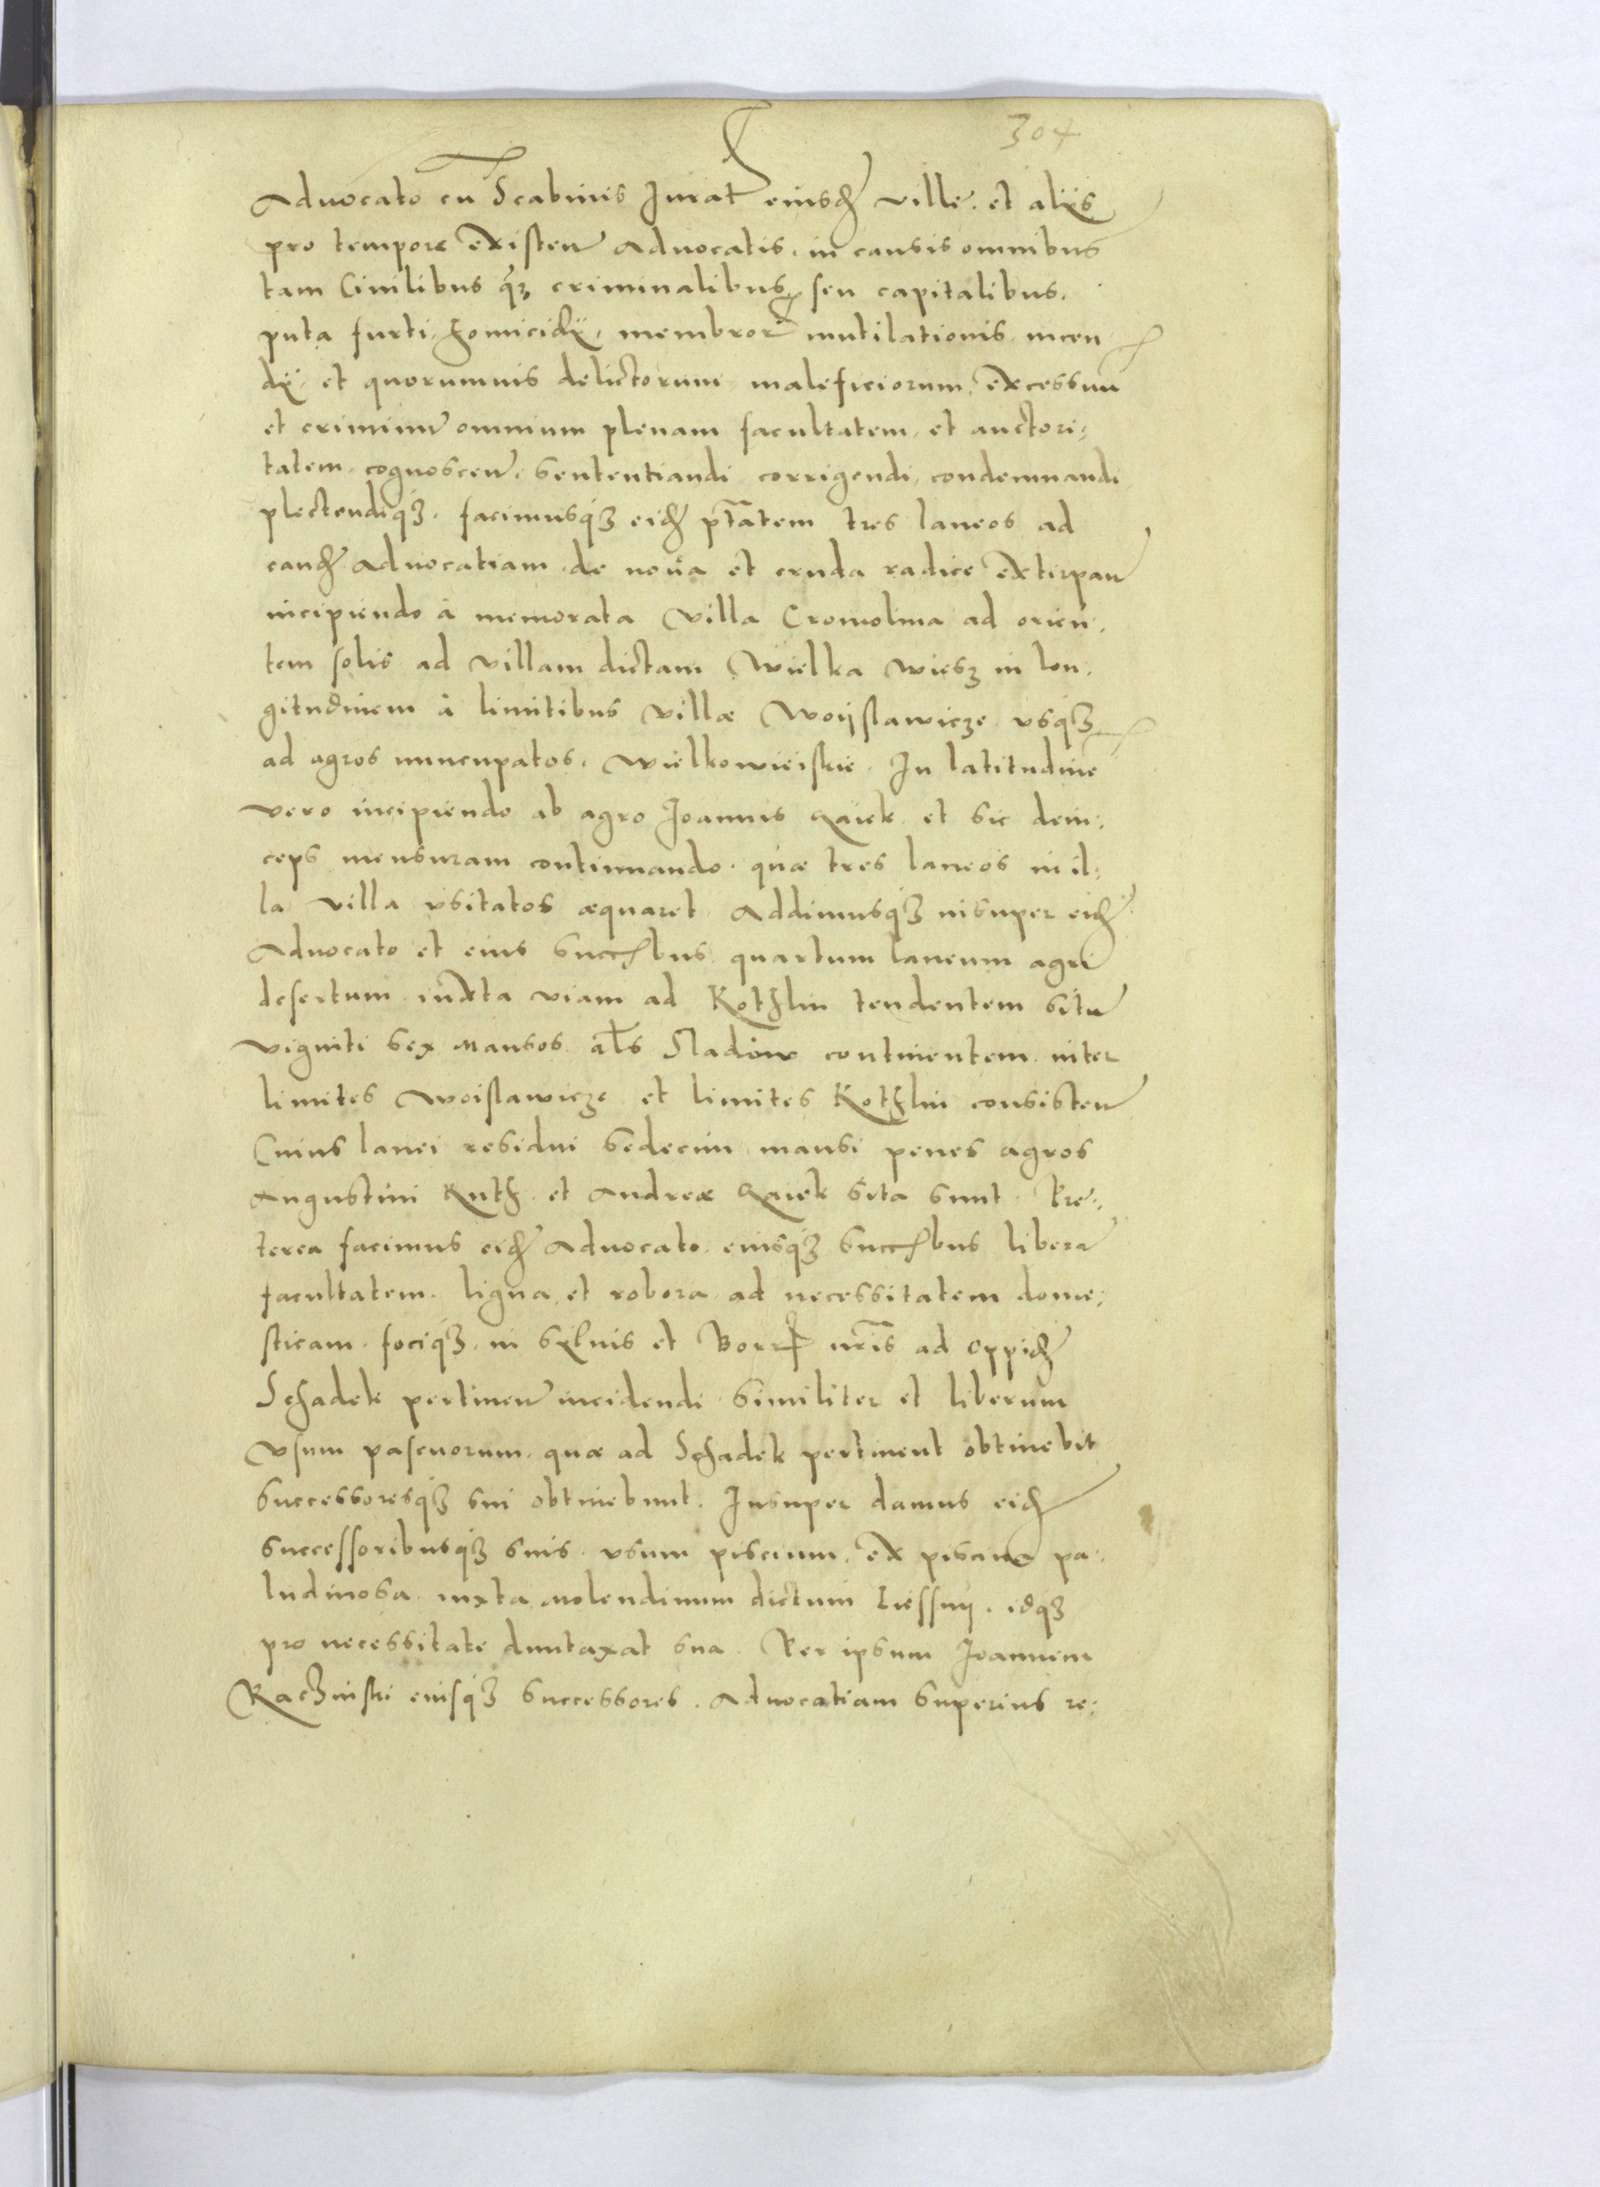 304
Advocato cu Scabinis Jurat eiusd ville et alÿs
pro tempore existen Advocatis, in causis omnibus
tam Civilibus qȝ criminalibus seu capitalibus,
puta furti, homicidÿ, membror mutilationis incen
dÿ, et quorumvis delictorum maleficiorum, excessuu
et criminu omnium plenam facultatem, et auctori;
tatem, cognoscen, sententiandi corrigendi, condemnandi
plectendiqȝ, facimusqȝ eid ptatem tres laneos ad
eand Advocatiam de nova et cruda radice extirpan
incipiendo à memorata villa Cromolina ad orien,
tem solis ad villam dictam Wielka wiesȝ in lon,
gitudinem à limitibus villæ Woijslawicze usqȝ
ad agros nuncupatos, Wielkowieiskie. In latitudine
vero incipiendo ab agro Joannis Raiek et sic dein;
ceps mensuram continuando, quæ tres laneos in il;
la villa usitatos æquaret Addimusqȝ insuper eid
Advocato et eius succbus quartum laneum agri
desertum iuxta viam ad Kothlin tendentem situ
viginti sex mansos als Sladow continentem inter
limites Woislawicze et limites Kothlin consisten
Cuius lanei residui sedecim mansi penes agros
Augustini Kuth et Andreæ Raiek sita sunt Pre;
terea facimus eid Advocato eiusqȝ succbus libera
facultatem ligna et robora ad necessitatem dome;
sticam, fociqȝ, in sylvis et Borr nris ad Oppid
Schadek pertinen incidendi similiter et liberum
usum pascuorum, quæ ad Schadek pertinent obtinebit
successoresqȝ sui obtinebunt. Insuper damus eid
successoribusqȝ suis usum piscium, ex piscina pa,
ludinosa iuxta Molendinum dictum Liessnij, idqȝ
pro necessitate duntaxat sua Per ipsum Joannem
Raczinski eiusqȝ successores, Advocatiam superius re;